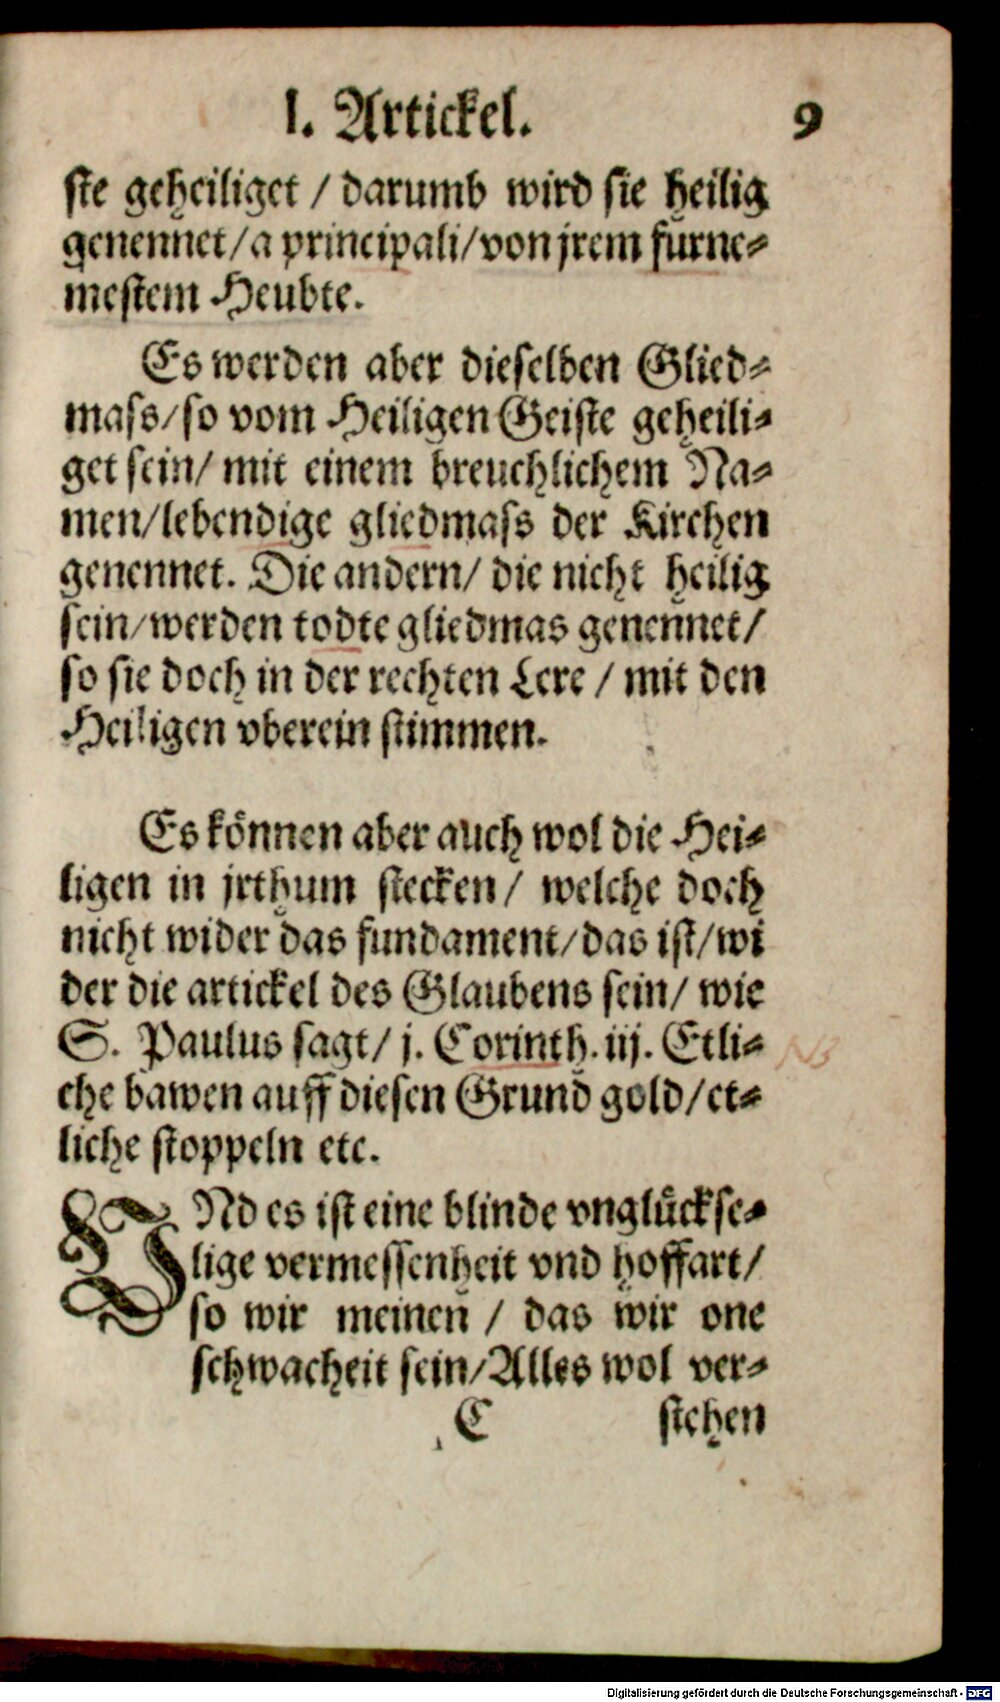 I. Artickel. 9
ste geheiliget / darumb wird sie heilig
genennet / a principali / von jrem fürne⸗
mestem Heubte.
Es werden aber dieselben Glied⸗
mass / so vom Heiligen Geiste geheili⸗
get sein / mit einem breuchlichem Na⸗
men / lebendige gliedmass der Kirchen
genennet. Die andern / die nicht heilig
sein / werden todte gliedmas genennet /
so sie doch in der rechten Lere / mit den
Heiligen vberein stimmen.
Es können aber auch wol die Hei⸗
ligen in jrthum stecken / welche doch
nicht wider das fundament / das ist / wi
der die artickel des Glaubens sein / wie
S. Paulus sagt / j. Corinth. iij. Etli⸗
NB
che bawen auff diesen Grund gold / et⸗
liche stoppeln etc.
VNd es ist eine blinde vnglückse⸗
lige vermessenheit vnd hoffart /
so wir meinen / das wir one
schwacheit sein / Alles wol ver⸗
C stehen
Digitalisierung gefördert durch die Deutsche Forschungsgemeinschaft - DFG